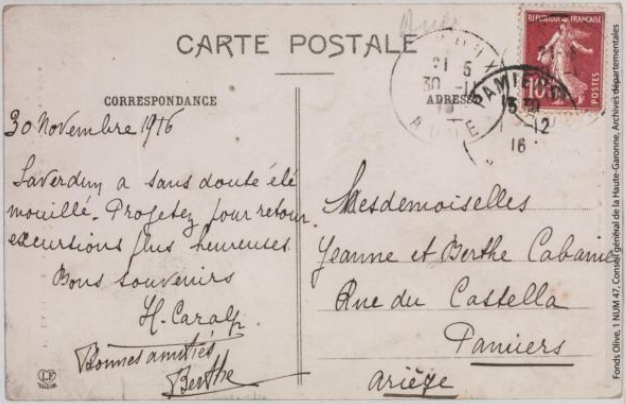 CARTE POSTALE
CORRESPONDANCE
ADRESSE
REPUBLIQUE FRANÇAISE
10
POSTES
21 5
30-11
AUDE
PAMIERS
15 30
1-12
16
30 Novembre 1916
Saverdun a sans doute été
mouillé. Projetez pour retour
excursions plus heureuses
Bons souvenirs
H. Caralp
Bonnes amitiés
Berthe
Mesdemoiselles
Jeanne et Berthe Cabanié
Rue du Castella
Pamiers
Ariège
LF
Fonds Olive, 1 NUM 47, Conseil général de la Haute-Garonne, Archives départementales